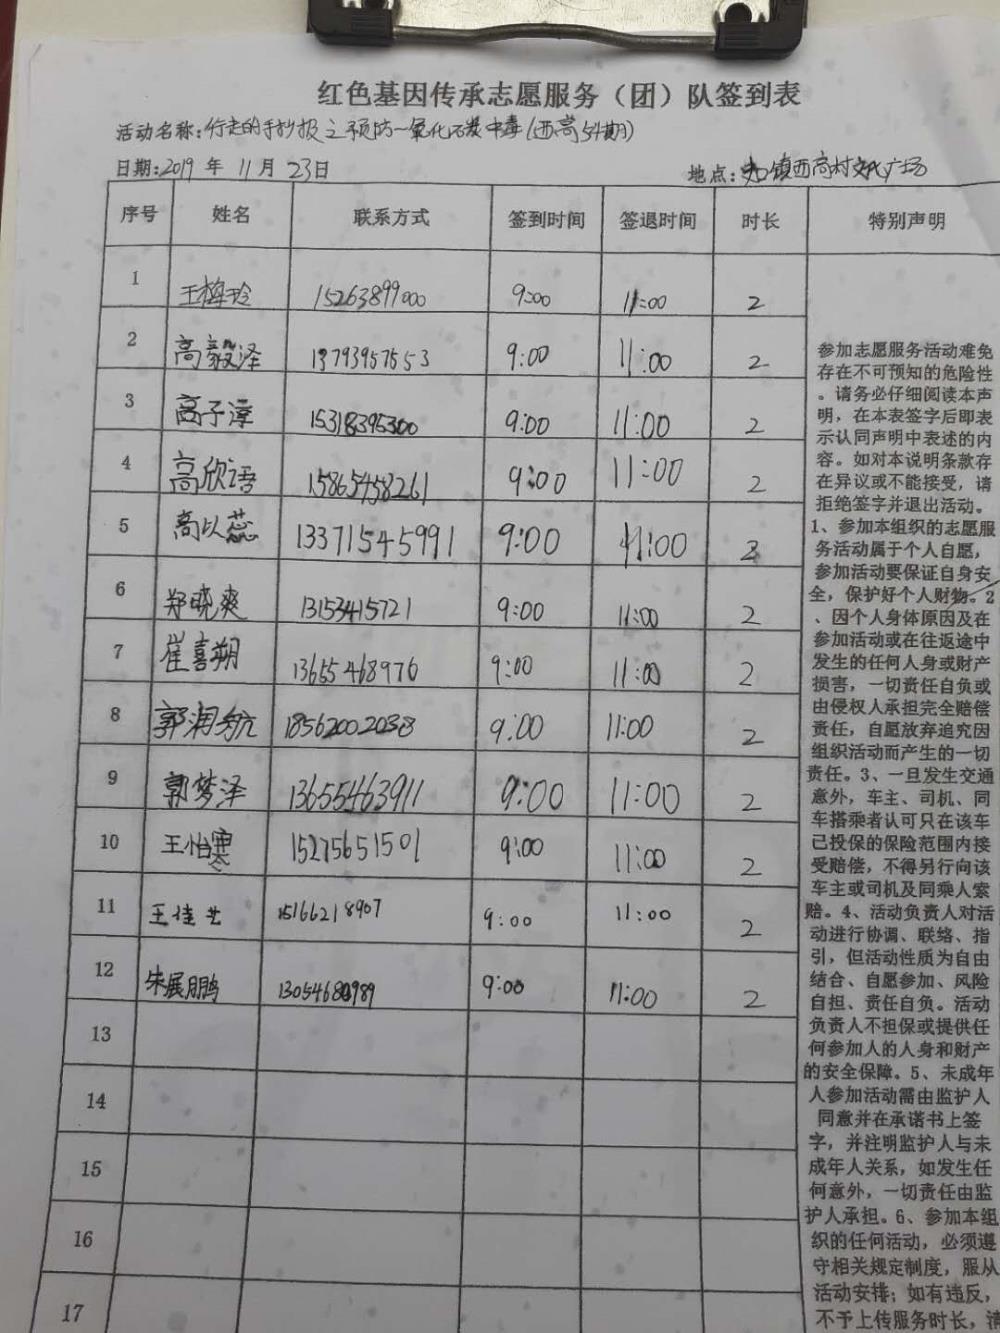 红色基因传承志愿服务（团）队签到表
活动名称:行走的手抄报之预防一氧化碳中毒(西高54期)
日期:2019 年 11 月 23日 地点: 镇西高村文化广场
序号 姓名 联系方式 签到时间 签退时间 时长 特别声明
1 王梅玲 15263899000 9:00 11:00 2
2 高毅泽 13793957553 9:00 11:00 2
3 高子淳 15318395300 9:00 11:00 2
4 高欣语 15865458261 9:00 11:00 2
5 高以蕊 13371545991 9:00 11:00 2
6 郑晓爽 13153415721 9:00 11:00 2
7 崔喜朔 13655468976 9:00 11:00 2
8 郭润航 18562002038 9:00 11:00 2
9 郭梦泽 13655463911 9:00 11:00 2
10 王怡寒 15275651501 9:00 11:00 2
11 王佳艺 15166218907 9:00 11:00 2
12 朱展鹏 13054680989 9:00 11:00 2
13
14
15
16
17
参加志愿服务活动难免
存在不可预知的危险性
。请务必仔细阅读本声
明，在本表签字后即表
示认同声明中表述的内
容。如对本说明条款存
在异议或不能接受，请
拒绝签字并退出活动。
1、参加本组织的志愿服
务活动属于个人自愿，
参加活动要保证自身安
全，保护好个人财物。2
、因个人身体原因及在
参加活动或在往返途中
发生的任何人身或财产
损害，一切责任自负或
由侵权人承担完全赔偿
责任，自愿放弃追究因
组织活动而产生的一切
责任。3、一旦发生交通
意外，车主、司机、同
车搭乘者认可只在该车
已投保的保险范围内接
受赔偿，不得另行向该
车主或司机及同乘人索
赔。4、活动负责人对活
动进行协调、联络、指
引，但活动性质为自由
结合、自愿参加、风险
自担、责任自负。活动
负责人不担保或提供任
何参加人的人身和财产
的安全保障。5、未成年
人参加活动需由监护人
同意并在承诺书上签
字，并注明监护人与未
成年人关系，如发生任
何意外，一切责任由监
护人承担。6、参加本组
织的任何活动，必须遵
守相关规定制度，服从
活动安排；如有违反，
不予上传服务时长，清